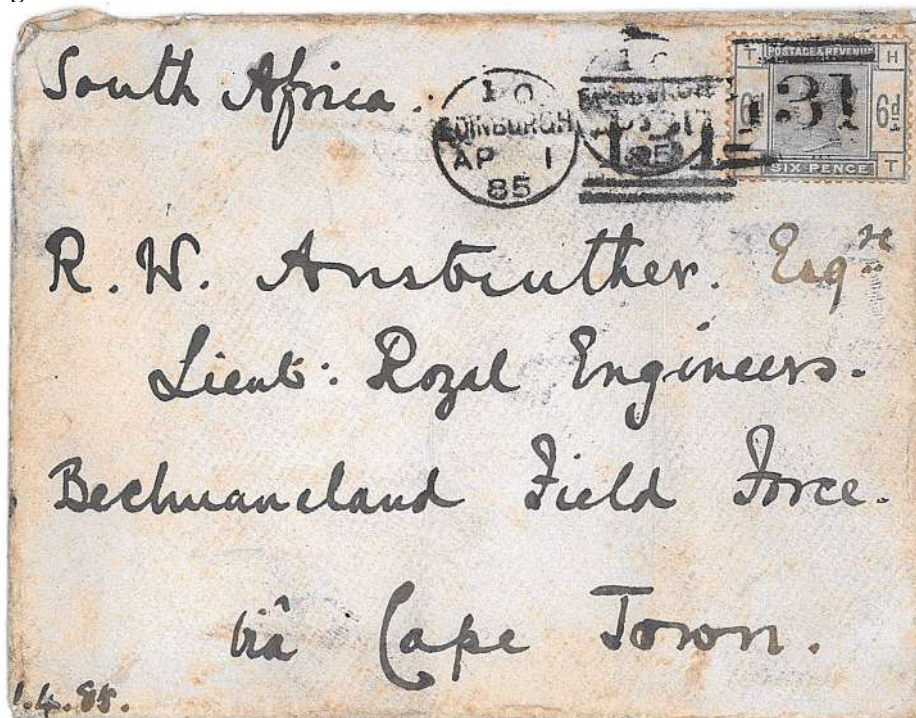 South Africa.
10
EDINBURGH
AP 1
85
131
T POSTAGE & REVENUE H
6d 6d
SIX PENCE T
R. W. Anstruther. Esqre
Lieut: Royal Engineers.
Bechuanaland Field Force.
viâ Cape Town.
1.4.85.